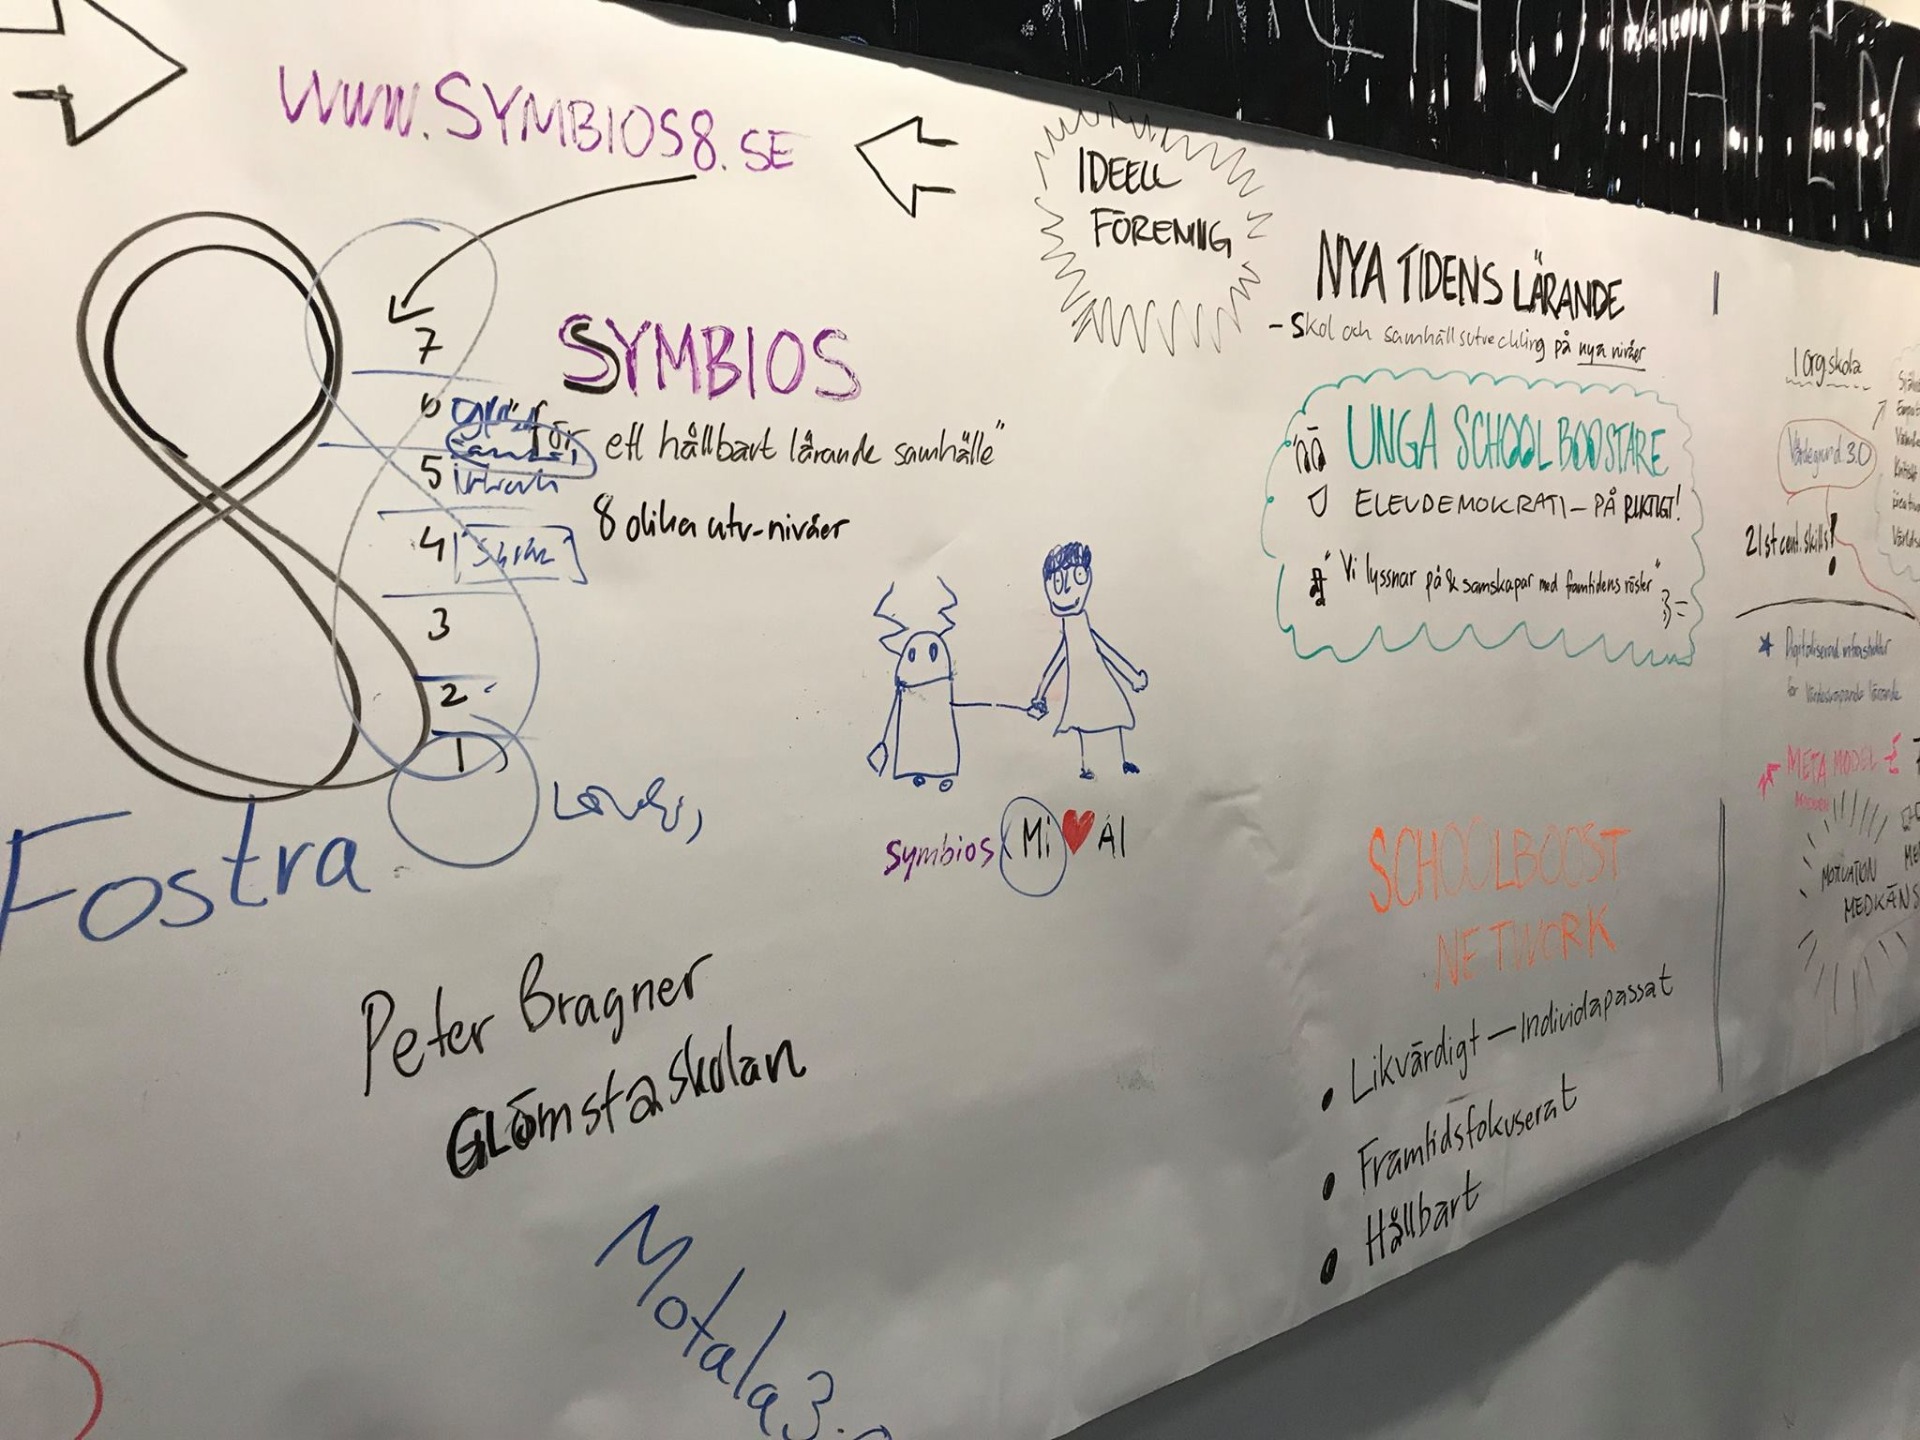 WWW.SYMBIOS8.SE
IDEELL
FÖRENING
7
6
5
4
3
2
1
SYMBIOS
för ett hållbart lärande samhälle"
8 olika utv-nivåer
Fostra
Symbios Mi ♥ AI
Peter Bragner
GLömstaskolan
Motala3.
NYA TIDENS LÄRANDE
- Skol och samhällsutveckling på nya nivåer
UNGA SCHOOLBOOSTARE
ELEVDEMOKRATI – PÅ RIKTIGT!
"Vi lyssnar på & samskapar med framtidens röster"
SCHOOLBOOST
NETWORK
• Likvärdigt – Individapassat
• Framtidsfokuserat
• Hållbart
1 org.skola
Värdegrund 3.0
21st cent. skills!
Digitaliserad infrastruktur
för värdeskapande lärande
META MODEL
MOTIVATION
MEDKÄNS